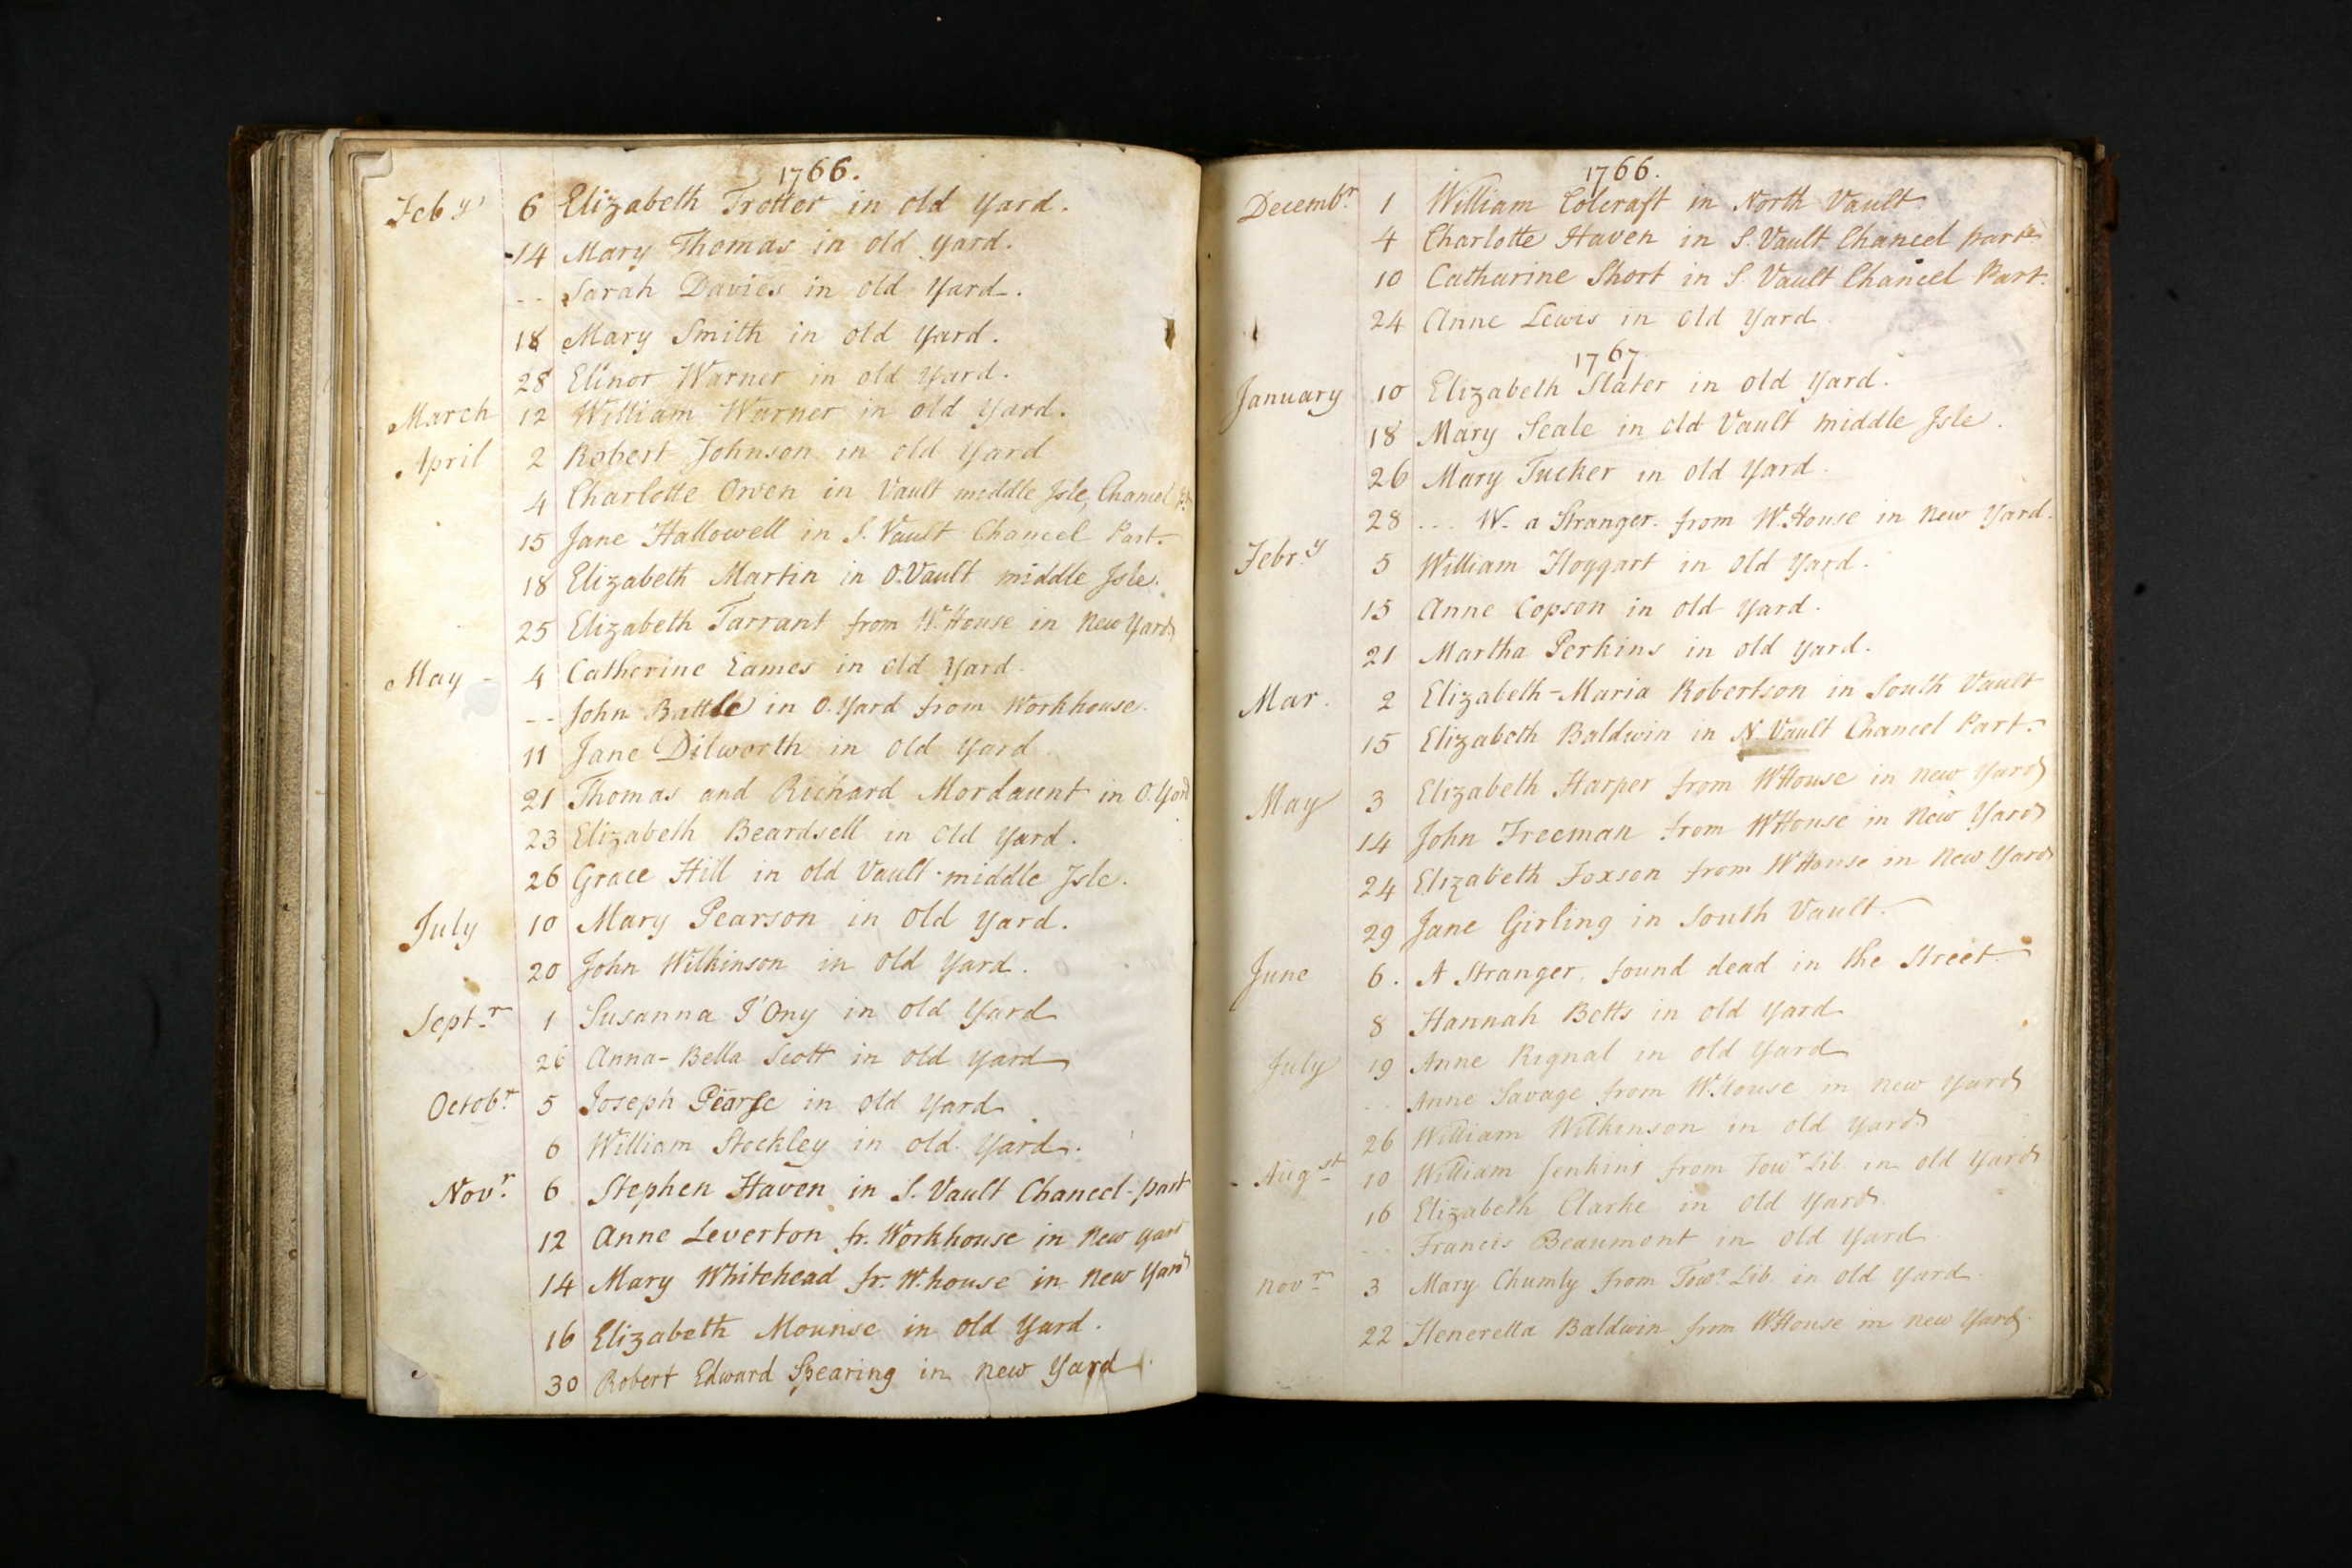 1766.
Feb.y 6 Elizabeth Trotter in old Yard.
14 Mary Thomas in old yard.
-- Sarah Davies in old Yard.
18 Mary Smith in old Yard.
28 Elinor Warner in old Yard.
March 12 William Warner in old Yard.
April 2 Robert Johnson in old Yard
4 Charlotte Owen in Vault middle Isle, Chancel
15 Jane Hallowell in S. Vault Chancel Part.
18 Elizabeth Martin in O. Vault middle Isle.
25 Elizabeth Tarrant from W. House in New Yard
May - 4 Catherine Eames in old Yard.
-- John Battle in O. Yard from Workhouse.
11 Jane Dilworth in old Yard
21 Thomas and Richard Mordaunt in O. Yard
23 Elizabeth Beardsell in old Yard.
26 Grace Hill in old Vault middle Isle.
July 10 Mary Pearson in old Yard.
20 John Wilkinson in old Yard.
Sept.r 1 Susanna I'Ony in old Yard
26 Anna-Bella Scott in old Yard
Octob.r 5 Joseph Pearse in old Yard
6 William Stockley in old Yard.
Nov.r 6 Stephen Haven in S. Vault Chancel-part
12 Anne Leverton fr. Workhouse in New Yard
14 Mary Whitehead fr. W. house in New Yard
16 Elizabeth Mounse in old Yard.
30 Robert Edward Spearing in new Yard
1766.
Decemb.r 1 William Colcraft in North Vault
4 Charlotte Haven in S. Vault Chancel part
10 Catharine Short in S. Vault Chancel Part.
24 Anne Lewis in old Yard
1767
January 10 Elizabeth Slater in old Yard.
18 Mary Seale in old Vault middle Isle.
26 Mary Tucker in old Yard.
28 ... W. a Stranger. from W. House in New Yard.
Febr.y 5 William Hoggart in old Yard.
15 Anne Copson in old Yard.
21 Martha Perkins in old yard.
Mar. 2 Elizabeth-Maria Robertson in South Vault
15 Elizabeth Baldwin in N. Vault Chancel Part.
May 3 Elizabeth Harper from W House in new Yard
14 John Freeman from W House in New Yard
24 Elizabeth Foxson from W House in New Yard
29 Jane Girling in South Vault.
June 6. A Stranger. found dead in the Street.
8 Hannah Betts in old Yard
July 19 Anne Rignal in old Yard
-- Anne Savage from W. House in new Yard
26 William Wilkinson in old Yard
Aug.st 10 William Jenkins from Tow.r Lib. in old Yard
16 Elizabeth Clarke in old Yard
-- Francis Beaumont in old Yard
Nov.r 3 Mary Chumly from Tow.r Lib. in old Yard.
22 Heneretta Baldwin from W House in new Yard.